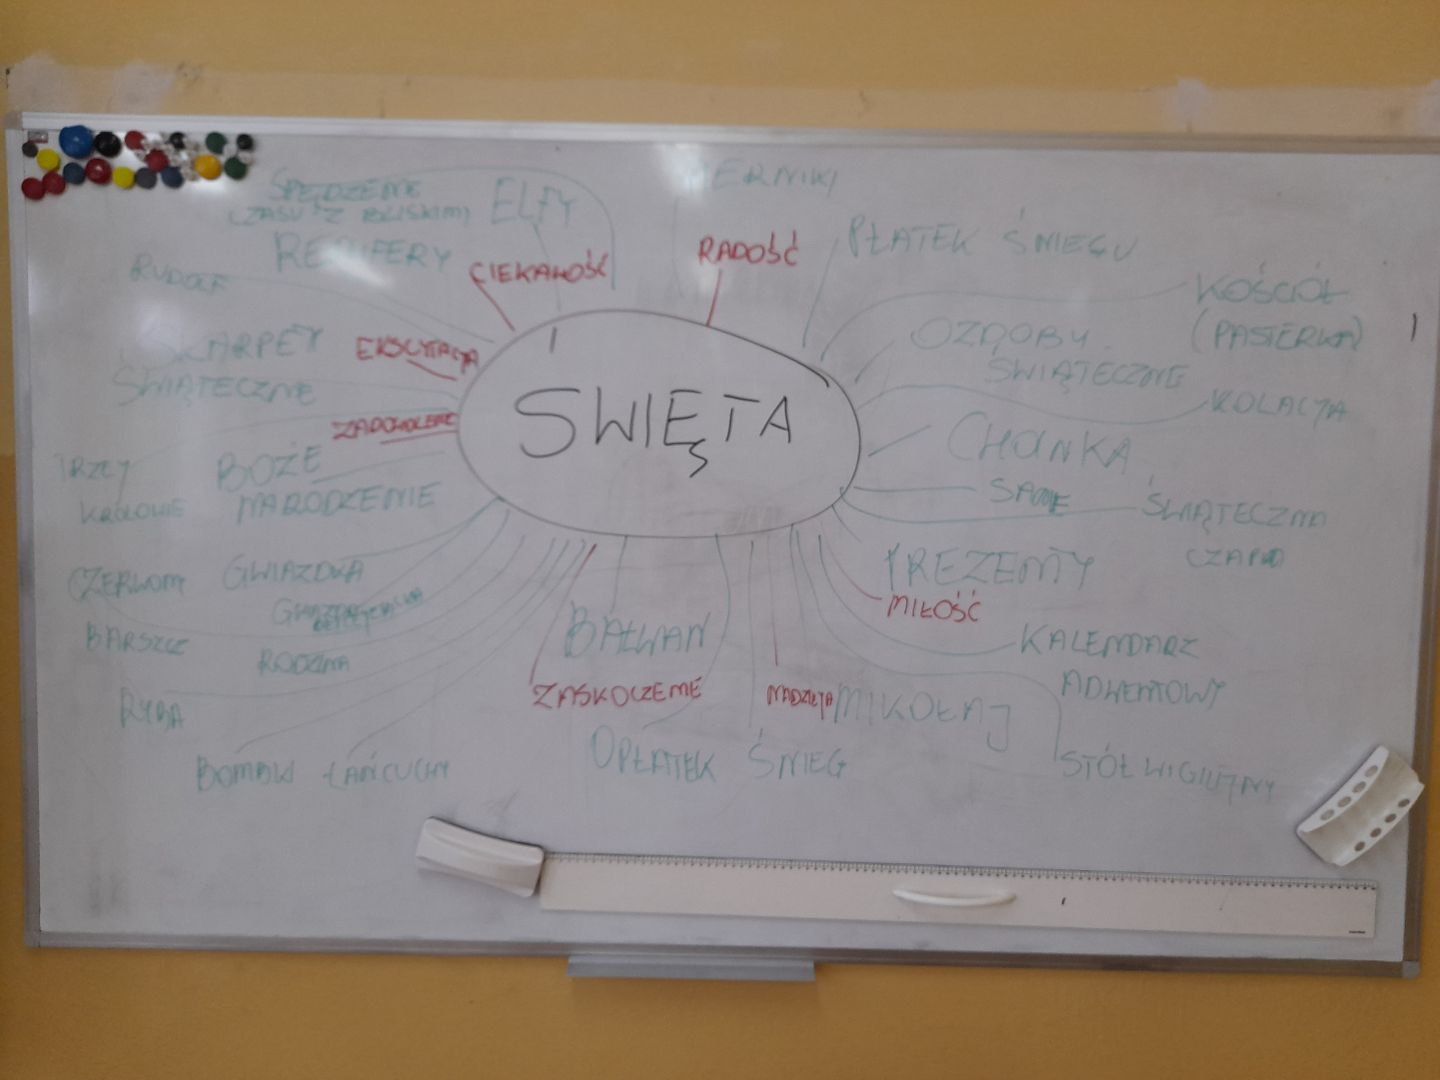 SPĘDZENIE
CZASU Z BLISKIMI
ELFY
PIERNIKI
RENIFERY
CIEKAWOŚĆ
RADOŚĆ
PŁATEK ŚNIEGU
RUDOLF
KOŚCIÓŁ
(PASTERKA)
SKARPETY
ŚWIĄTECZNE
EKSCYTACJA
OZDOBY
ŚWIĄTECZNE
ŚWIĘTA
KOLACJA
ZADOWOLENIE
CHOINKA
TRZEJ
KRÓLOWIE
BOŻE
NARODZENIE
SANIE
ŚWIĄTECZNA
CZAPKA
CZERWONY
BARSZCZ
GWIAZDKA
GWIAZDA
BETLEJEMSKA
RODZINA
PREZENTY
MIŁOŚĆ
BAŁWAN
KALENDARZ
ADWENTOWY
RYBA
ZASKOCZENIE
NADZIEJA
MIKOŁAJ
BOMBKI
ŁAŃCUCHY
OPŁATEK
ŚNIEG
STÓŁ WIGILIJNY